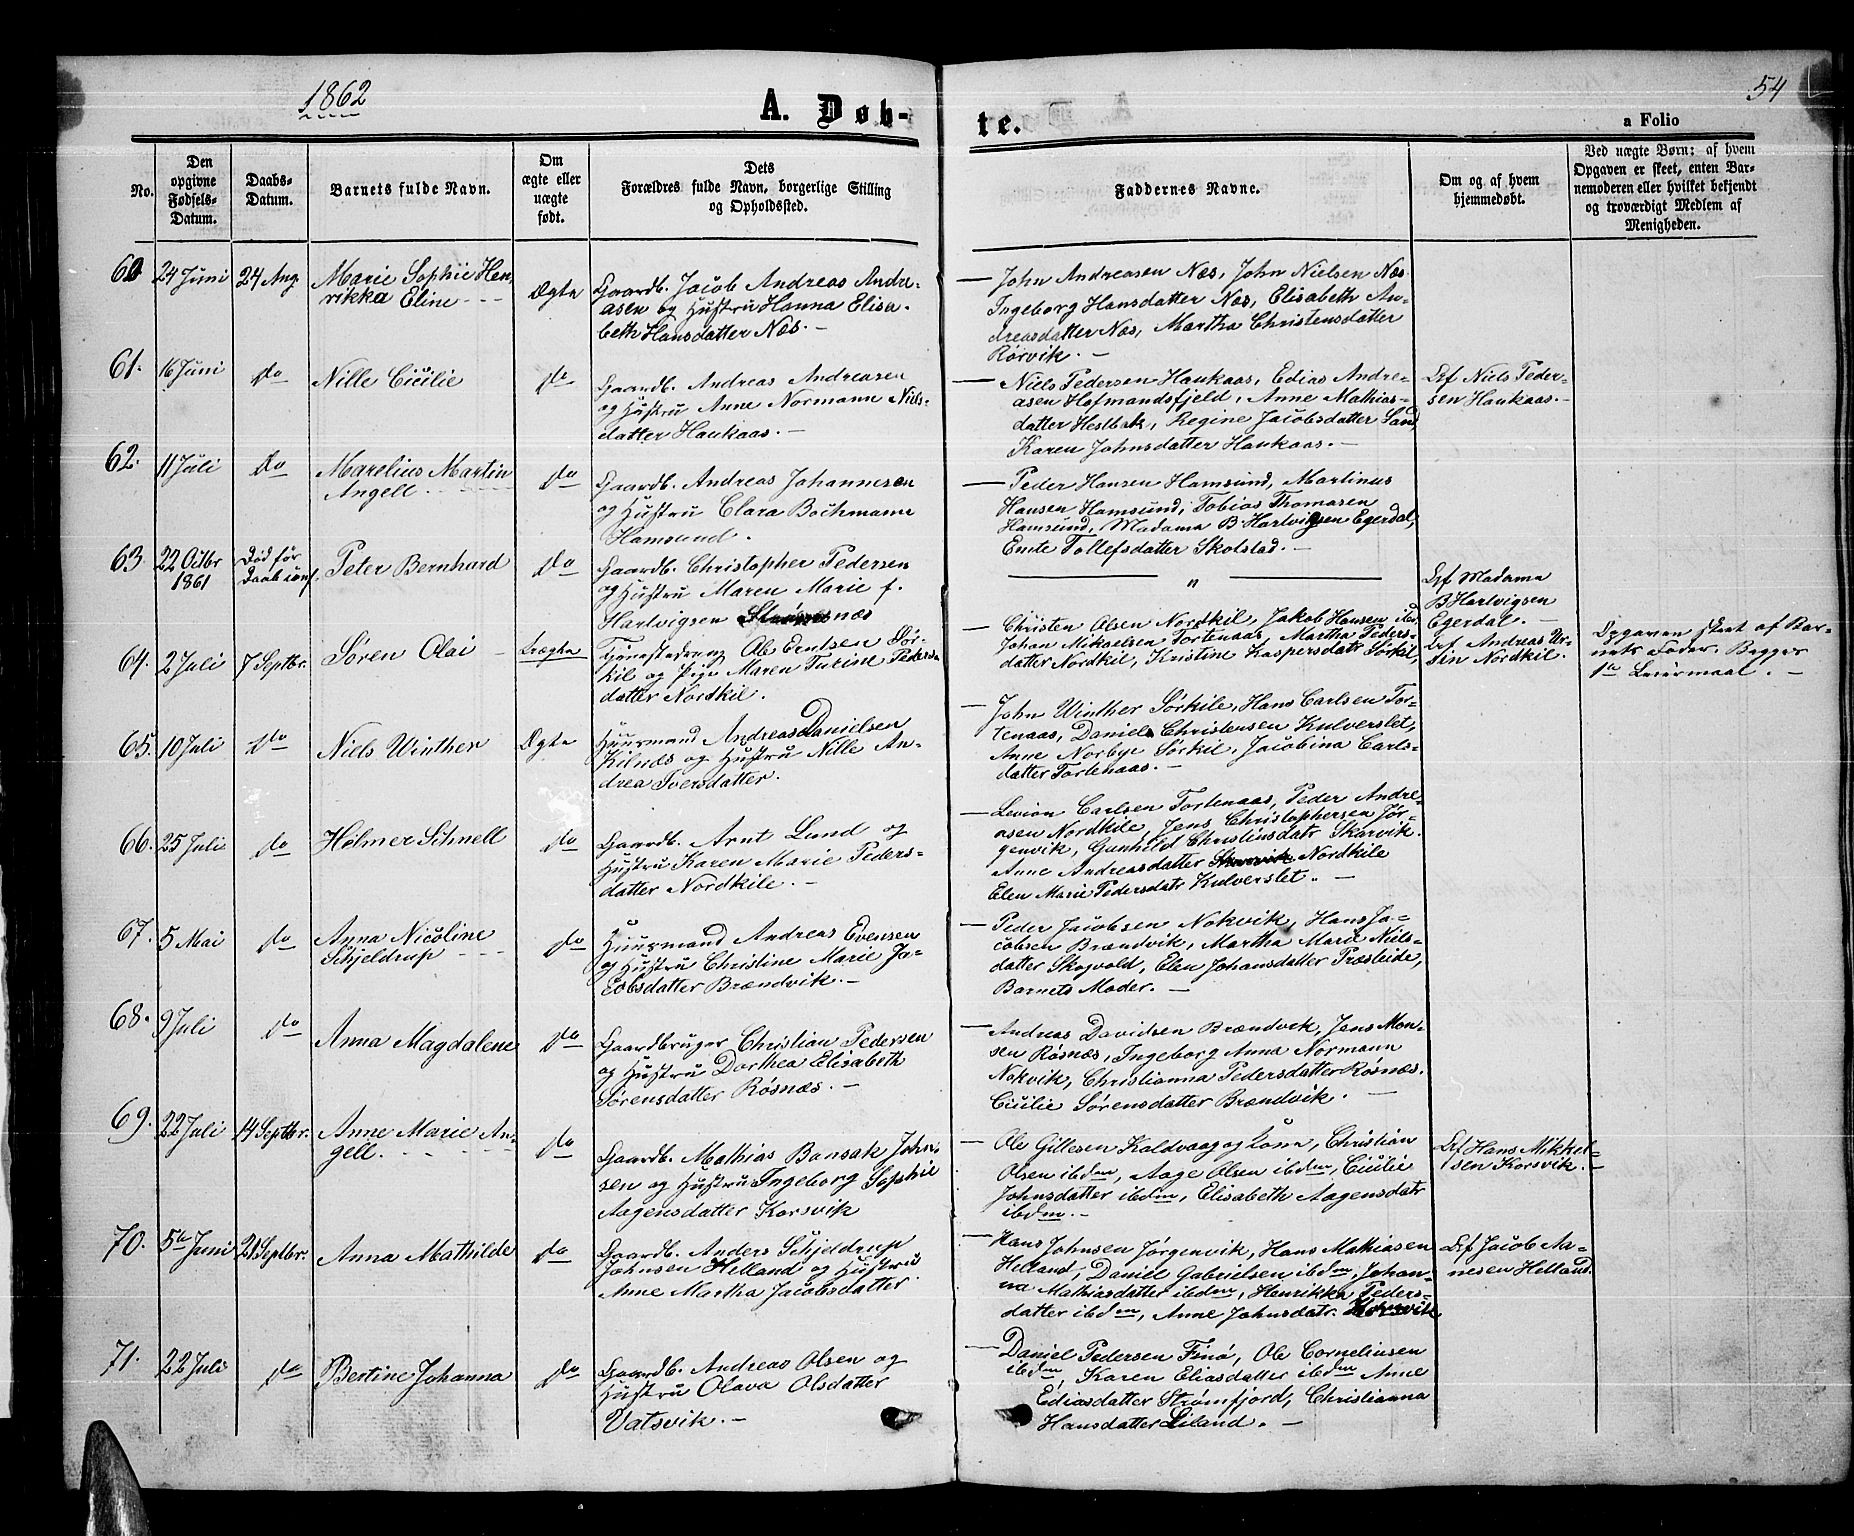 1862
A. Døb-
te.
54
a Folio
No.
Den
opgivne
Fødsels-
Datum.
Daabs-
Datum.
Barnets fulde Navn.
Om
ægte eller
uægte
født.
Dets
Forældres fulde Navn, borgerlige Stilling
og Opholdssted.
Faddernes Navne.
Om og af hvem
hjemmedøbt.
Ved uægte Børn: af hvem
Opgaven er skeet, enten Bar-
nemoderen eller hvilket bekjendt
og troværdigt Medlem af
Menigheden.
60
24 Juni
24 Aug.
Marie Sophie Hen-
rikka Eline
Ægte
Gaardb. Jacob Andreas Andre-
asen og Hustru Hanna Elisa-
beth Hansdatter Næs. —
— John Andreasen Næs, John Nielsen Næs.
Ingeborg Hansdatter Næs, Elisabeth An-
dreasdatter Næs, Martha Christensdatter
Rørvik. —
61.
16 Juni
do
Nille Cicilie
do
Gaardb. Andreas Andreasen
og Hustru Anne Normann Niels-
datter Haukaas. —
— Niels Pedersen Haukaas, Edias Andre-
asen Hofmandsfjeld, Anne Mathias-
datter Hestbak, Regine Jacobsdatter Sand,
Karen Johnsdatter Haukaas. —
Niels Peder-
sen Haukaas. —
62.
11 Juli
Do
Marelius Martin
Angell
do
Gaardb. Andreas Johannesen
og Hustru Clara Bochmann
Hamsund.
— Peder Hansen Hamsund, Martinus
Hansen Hamsund, Tobias Thomasen
Hamsund, Madama B. Hartvigsen Egerdal,
Emte Tollefsdatter Skolstad. —
63.
22 Octbr
1861
Død før
Daab
Peter Bernhard
Do
Gaardb. Christopher Pedersen
og Hustru Maren Marie f.
Hartvigsen
"
Madama
B Hartvigsen
Egerdal.
64.
2 Juli
7 Septbr.
Søren Olai
Uægte
Tjenestedreng Ole Erntsen Sør-
kil og Pige Maren Turine Peders-
datter Nordkil.
— Christen Olsen Nordkil, Jakob Hansen ibd.
Johan Mikaelsen Tortenaas, Martha Peders-
datter Nordkil, Kristine Kaspersdatr Sørkil,
Andreas Ur-
sin Nordkil.
Opgaven skeet af Bar-
nets Fader. Begges
1ste Leiermaal. —
65.
10 Juli
do
Niels Winther
Ægte
Huusmand Andreas Danielsen
Kilnæs og Hustru Nille An-
drea Iversdatter.
— John Winther Sørkile, Hans Carlsen Tor-
tenaas, Daniel Christensen Kulverslet,
Anne Norbye Sørkil, Jacobina Carls-
datter Tortenaas. —
66.
25 Juli
do
Holmer Schnell
do
Gaardb. Arnt Lund og
Hustru Karen Marie Peders-
datter Nordkile. —
— Levion Carlsen Tortenaas, Peder Andre-
asen Nordkile, Jens Christophersen Jør-
genvik, Gunhild Christiansdatr Skarvik.
Anne Andreasdatter Nordkile
Elen Marie Pedersdatr Kulverslet. —
67.
5 Mai
do
Anna Nicoline
Schjeldrup
do
Huusmand Andreas Evensen
og Hustru Christine Marie Ja-
cobsdatter Brændvik. —
— Peder Jacobsen Nokvik, Hans Ja-
cobsen Brændvik, Martha Marie Niels-
datter Skogvold, Elen Johansdatter Præsteide,
Barnets Moder. —
68.
9 Juli
do
Anna Magdalene
do
Gaardbruger Christian Pedersen
og Hustru Dorthea Elisabeth
Sørensdatter Røsnæs. —
— Andreas Davidsen Brændvik, Jens Mon-
sen Røsnæs, Ingeborg Anna Normann
Nokvik, Christianna Pedersdatter Røsnæs.
Cicilie Sørensdatter Brændvik. —
69.
22 Juli
14 Septbr.
Anne Marie An-
gell.
do
Gaardb. Mathias Bansak John-
sen og Hustru Ingeborg Sophie
Aagensdatter Korsvik
— Ole Gillesen Kaldvaag og Kone, Christian
Olsen ibdm, Aage Olsen ibdm, Cicilie
Johnsdatter ibdm, Elisabeth Aagensdatr
ibdm. —
Hans Mikkel-
sen Korsvik. —
70.
5te Juni
21 Septbr.
Anna Mathilde
do
Gaardb. Anders Schjeldrup
Johnsen Helland og Hustru
Anne Martha Jacobsdatter
— Hans Johnsen Jørgenvik, Hans Mathiasen
Helland, Daniel Gabrielsen ibdm, Johan-
na Mathiasdatter ibdm, Henrikka Peders-
datter ibdm, Anne Johnsdatr. Korsvik
Jacob Aa-
nesen Helland.
71.
22 Juli
do
Bertine Johanna
do
Gaardb. Andreas Olsen og
Hustru Olava Olsdatter
Vatsvik. —
— Daniel Pedersen Finø, Ole Corneliusen
ibdm, Karen Eliasdatter ibdm Anne
Ediasdatter Strømfjord, Christianna
Hansdatter Liland. —